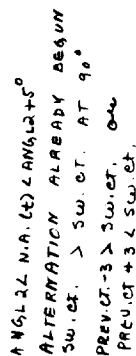 ANGL2 < N.A. (t) < ANGL2+5°
ALTERNATION ALREADY BEGUN
SW.CT. > SW.CT. AT 90°
PREV.CT.-3 > SW.CT. OR
PREV.CT+3 < SW.CT.